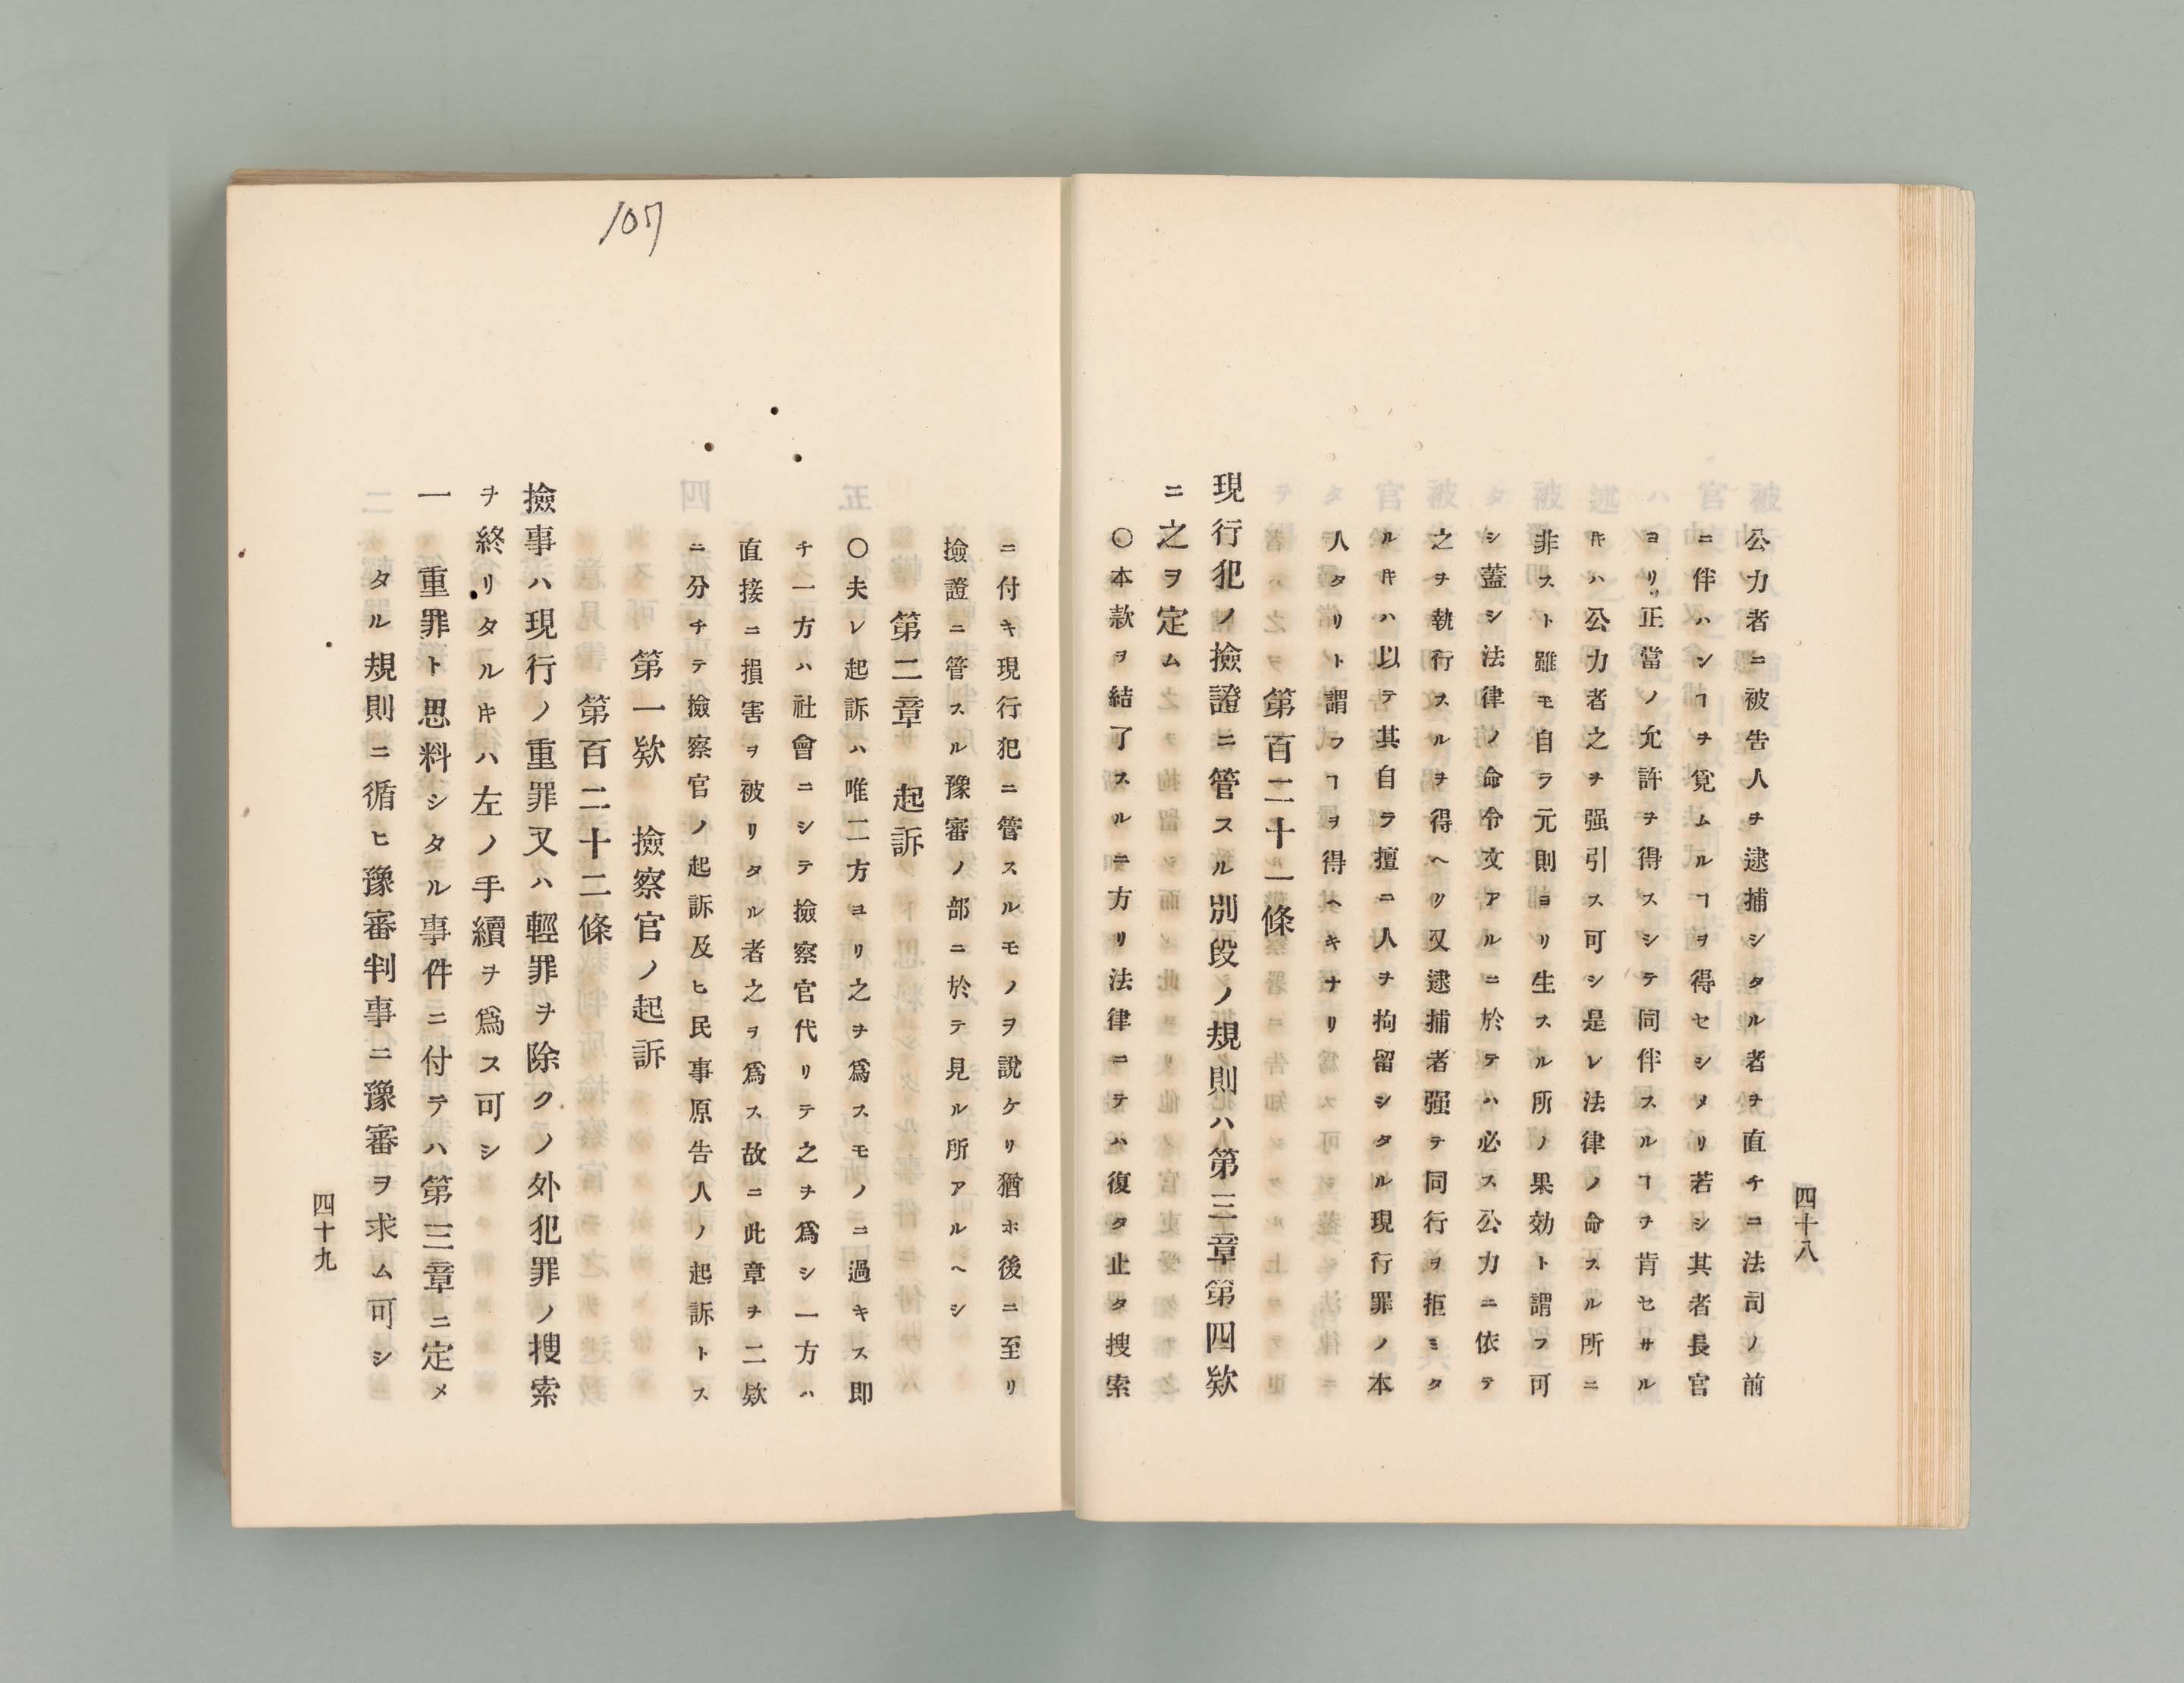 四十八
公力者ニ被告人ヲ逮捕シタル者ヲ直チニ法司ノ前
ニ伴ハンヿヲ覓ムルヿヲ得セシメリ若シ其者長官
ヨリ正當ノ允許ヲ得スシテ同伴スルヿヲ肯セサル
𪜈ハ公力者之ヲ强引ス可シ是レ法律ノ命スル所ニ
非スト雖モ自ラ元則ヨリ生スル所ノ果効ト謂フ可
シ蓋シ法律ノ命令文アルニ於テハ必ス公力ニ依テ
之ヲ執行スルヲ得ヘリ又逮捕者强テ同行ヲ拒ミタ
ルキハ以テ其自ラ擅ニ人ヲ拘留シタル現行罪ノ本
人タリト謂フヿヲ得ヘキナリ
第百二十一條
現行犯ノ撿證ニ管スル別段ノ規則ハ第三章第四欵
ニ之ヲ定ム
〇本款ヲ結了スルニ方リ法律ニテハ復タ止タ搜索
ニ付キ現行犯ニ管スルモノヲ說ケリ猶ホ後ニ至リ
撿證ニ管スル豫審ノ部ニ於テ見ル所アルヘシ
第二章 起訴
〇夫レ起訴ハ唯二方ヨリ之ヲ爲スモノニ過キス即
チ一方ハ社會ニシテ撿察官代リテ之ヲ爲シ一方ハ
直接ニ損害ヲ被リタル者之ヲ爲ス故ニ此章ヲ二欵
ニ分チテ撿察官ノ起訴及ヒ民事原告人ノ起訴トス
第一欵 撿察官ノ起訴
第百二十二條
撿事ハ現行ノ重罪又ハ輕罪ヲ除クノ外犯罪ノ搜索
ヲ終リタルキハ左ノ手續ヲ爲ス可シ
一 重罪ト思料シタル事件ニ付テハ第三章ニ定メ
タル規則ニ循ヒ豫審判事ニ豫審ヲ求ム可シ
四十九
107